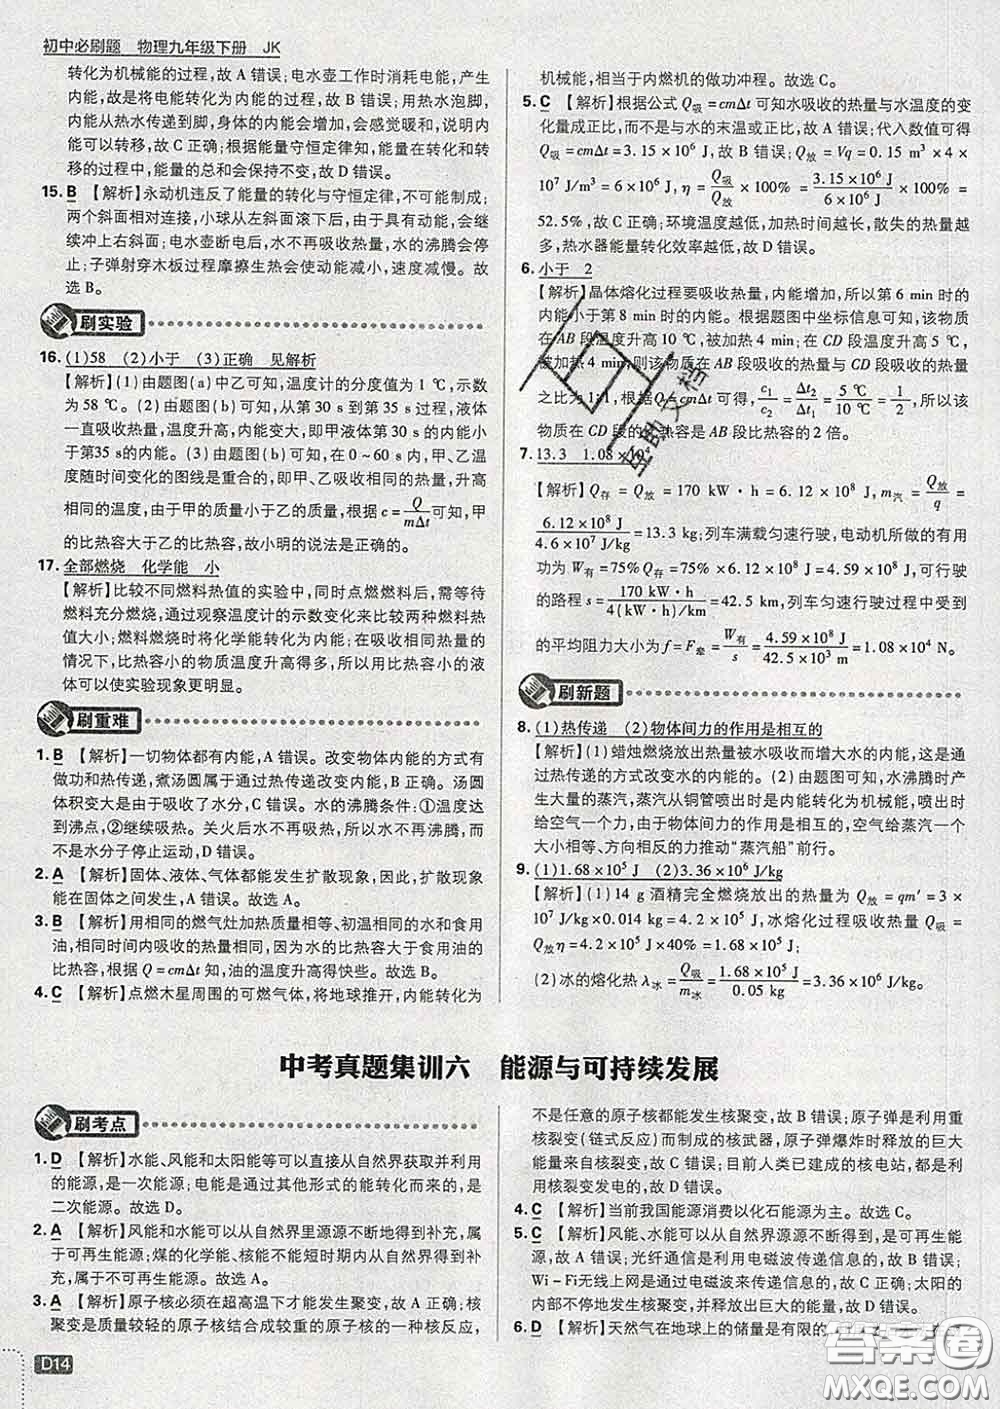 初中必刷题 物理九年级下册 JK
转化为机械能的过程,故 A 错误;电水壶工作时消耗电能,产生
内能,故是将电能转化为内能的过程,故 B 错误;用热水泡脚,
内能从热水传递到脚,身体的内能会增加,会感觉暖和,说明内
能可以转移,故 C 正确;根据能量守恒定律知,能量在转化和转
移的过程中,能量的总和会保持不变,故 D 错误。
15. B 【解析】永动机违反了能量的转化与守恒定律,不可能制成;
两个斜面相对连接,小球从左斜面滚下后,由于具有动能,会继
续冲上右斜面;电水壶断电后,水不再吸收热量,水的沸腾会停
止;子弹射穿木板过程摩擦生热会使动能减小,速度减慢。故
选 B。
刷实验
16. (1)58 (2)小于 (3)正确 见解析
【解析】(1)由题图(a)中乙可知,温度计的分度值为 1 ℃,示数
为 58 ℃。(2)由题图(b)可知,从第 30 s 到第 35 s 过程,液体
一直吸收热量,温度升高,内能变大,即甲液体第 30 s 的内能小
于第35 s的内能。(3)由题图(b)可知,在 0~60 s 内,甲、乙温
度随时间变化的图线是重合的,即甲、乙吸收相同的热量,升高
相同的温度,由于甲的质量小于乙的质量,根据 c = Q/(mΔt) 可知,甲
的比热容大于乙的比热容,故小明的说法是正确的。
17. 全部燃烧 化学能 小
【解析】比较不同燃料热值的实验中,同时点燃燃料后,需等待
燃料充分燃烧,通过观察温度计的示数变化来比较两种燃料热
值大小;燃料燃烧时将化学能转化为内能;在吸收相同热量的
情况下,比热容小的物质温度升高得多,所以比热容小的液
体可以使实验现象更明显。
刷重难
1. B 【解析】一切物体都有内能,A 错误。改变物体内能的方式有
做功和热传递,煮汤圆属于通过热传递改变内能,B 正确。汤圆
体积变大是由于吸收了水分,C 错误。水的沸腾条件:①温度达
到沸点,②继续吸热。关火后水不再吸热,所以不再沸腾,而不
是水分子停止运动,D 错误。
2. A 【解析】固体、液体、气体都能发生扩散现象,因此,扩散现象可
在固体之间发生,A 错误。故选 A。
3. B 【解析】用相同的燃气灶加热质量相等、初温相同的水和食用
油,相同时间内吸收的热量相同,因为水的比热容大于食用油的
比热容,根据 Q = cmΔt 知,油的温度升高得快些。故选 B。
4. C 【解析】点燃木星周围的可燃气体,将地球推开,内能转化为
机械能,相当于内燃机的做功冲程。故选 C。
5. C 【解析】根据公式 Q吸 = cmΔt 可知水吸收的热量与水温度的变
化量成正比,而不是与水的末温成正比,故 A 错误;代入数值可得
Q吸 = cmΔt = 3.15 × 10⁶ J,故 B 错误;Q放 = Vq = 0.15 m³ × 4 ×
10⁷ J/m³ = 6 × 10⁶ J,η = Q吸/Q放 × 100% = (3.15 × 10⁶ J)/(6 × 10⁶ J) × 100% =
52.5%,故 C 正确;环境温度越低,加热时间越长,散失的热量越
多,热水器能量转化效率越低,故 D 错误。
6. 小于 2
【解析】晶体熔化过程要吸收热量,内能增加,所以第 6 min 时的
内能小于第 8 min 时的内能。根据题图中坐标信息可知,该物
质在 AB 段温度升高 10 ℃,被加热 4 min;在 CD 段升高 5 ℃,
被加热 4 min,则该物质在 AB 段吸收的热量与 CD 段吸收的热量
之比为 1:1,根据 Q = cmΔt 可得,c₁/c₂ = Δt₂/Δt₁ = 5 ℃/10 ℃ = 1/2,所以该
物质在 CD 段的比热容是 AB 段比热容的 2 倍。
7. 13.3 1.08×10⁴
【解析】Q存 = Q放 = 170 kW·h = 6.12 × 10⁸ J,m汽 = Q放/q =
(6.12 × 10⁸ J)/(4.6 × 10⁷ J/kg) = 13.3 kg;列车满载匀速行驶,电动机所做的有用
功为 W有 = 75% Q存 = 75% × 6.12 × 10⁸ J = 4.59 × 10⁸ J;可行驶
的路程 s = (170 kW·h)/(4(kW·h)/km) = 42.5 km,列车匀速行驶过程中受到
的平均阻力大小为 f = F牵 = W有/s = (4.59 × 10⁸ J)/(42.5 × 10³ m) = 1.08 × 10⁴ N。
刷新题
8. (1)热传递 (2)物体间力的作用是相互的
【解析】(1)蜡烛燃烧放出热量被水吸收而增大水的内能,这是通
过热传递的方式改变水的内能的。(2)由题图可知,水沸腾时产
生大量的蒸汽,蒸汽从铜管喷出时由内能转化为机械能,喷出时
给空气一个力,由于物体间力的作用是相互的,空气给蒸汽一个
大小相等、方向相反的力推动“蒸汽船”前行。
9. (1)1.68×10⁵ J (2)3.36×10⁶ J/kg
【解析】(1)14 g 酒精完全燃烧放出的热量为 Q放 = qm′ = 3 ×
10⁷ J/kg × 0.014 kg = 4.2 × 10⁵ J,冰熔化过程吸收热量 Q吸 =
Q放η = 4.2 × 10⁵ J × 40% = 1.68 × 10⁵ J;
(2)冰的熔化热 λ冰 = Q吸/m冰 = (1.68 × 10⁵ J)/(0.05 kg) = 3.36 × 10⁶ J/kg。
中考真题集训六 能源与可持续发展
刷考点
1. D 【解析】水能、风能和太阳能等可以直接从自然界获取并利用
的能源,是一次能源;电能是通过其他形式的能转化而来的,是
二次能源。故选 D。
2. A 【解析】风能和水能可以从自然界里源源不断地得到补充,属
于可再生能源;煤的化学能、核能不能短时期内从自然界得到补
充,属于不可再生能源。故选 A。
3. A 【解析】原子核必须在超高温下才能发生聚变,故 A 正确;核
聚变是质量较轻的原子核结合成较重的原子核的一种核反应,
不是任意的原子核都能发生核聚变,故 B 错误;原子弹是利用重
核裂变(链式反应)而制成的核武器,原子弹爆炸时释放的巨大
能量来自核裂变,故 C 错误;目前人类已建成的核电站,都是利
用核裂变发电的,故 D 错误。
4. C 【解析】当前我国能源消费以化石能源为主。故选 C。
5. C 【解析】风能、水能可以从自然界源源不断地得到,是可再生能
源,故 A 错误;光纤通信是利用电磁波传递信息的,故 B 错误;
Wi-Fi无线上网是通过电磁波来传递信息的,故 C 正确;太阳的
内部不停地发生核聚变,并释放出巨大的能量,故 D 错误。
6. D 【解析】天然气在地球上的储量是有限的
D14
答案圈
MXQE.COM